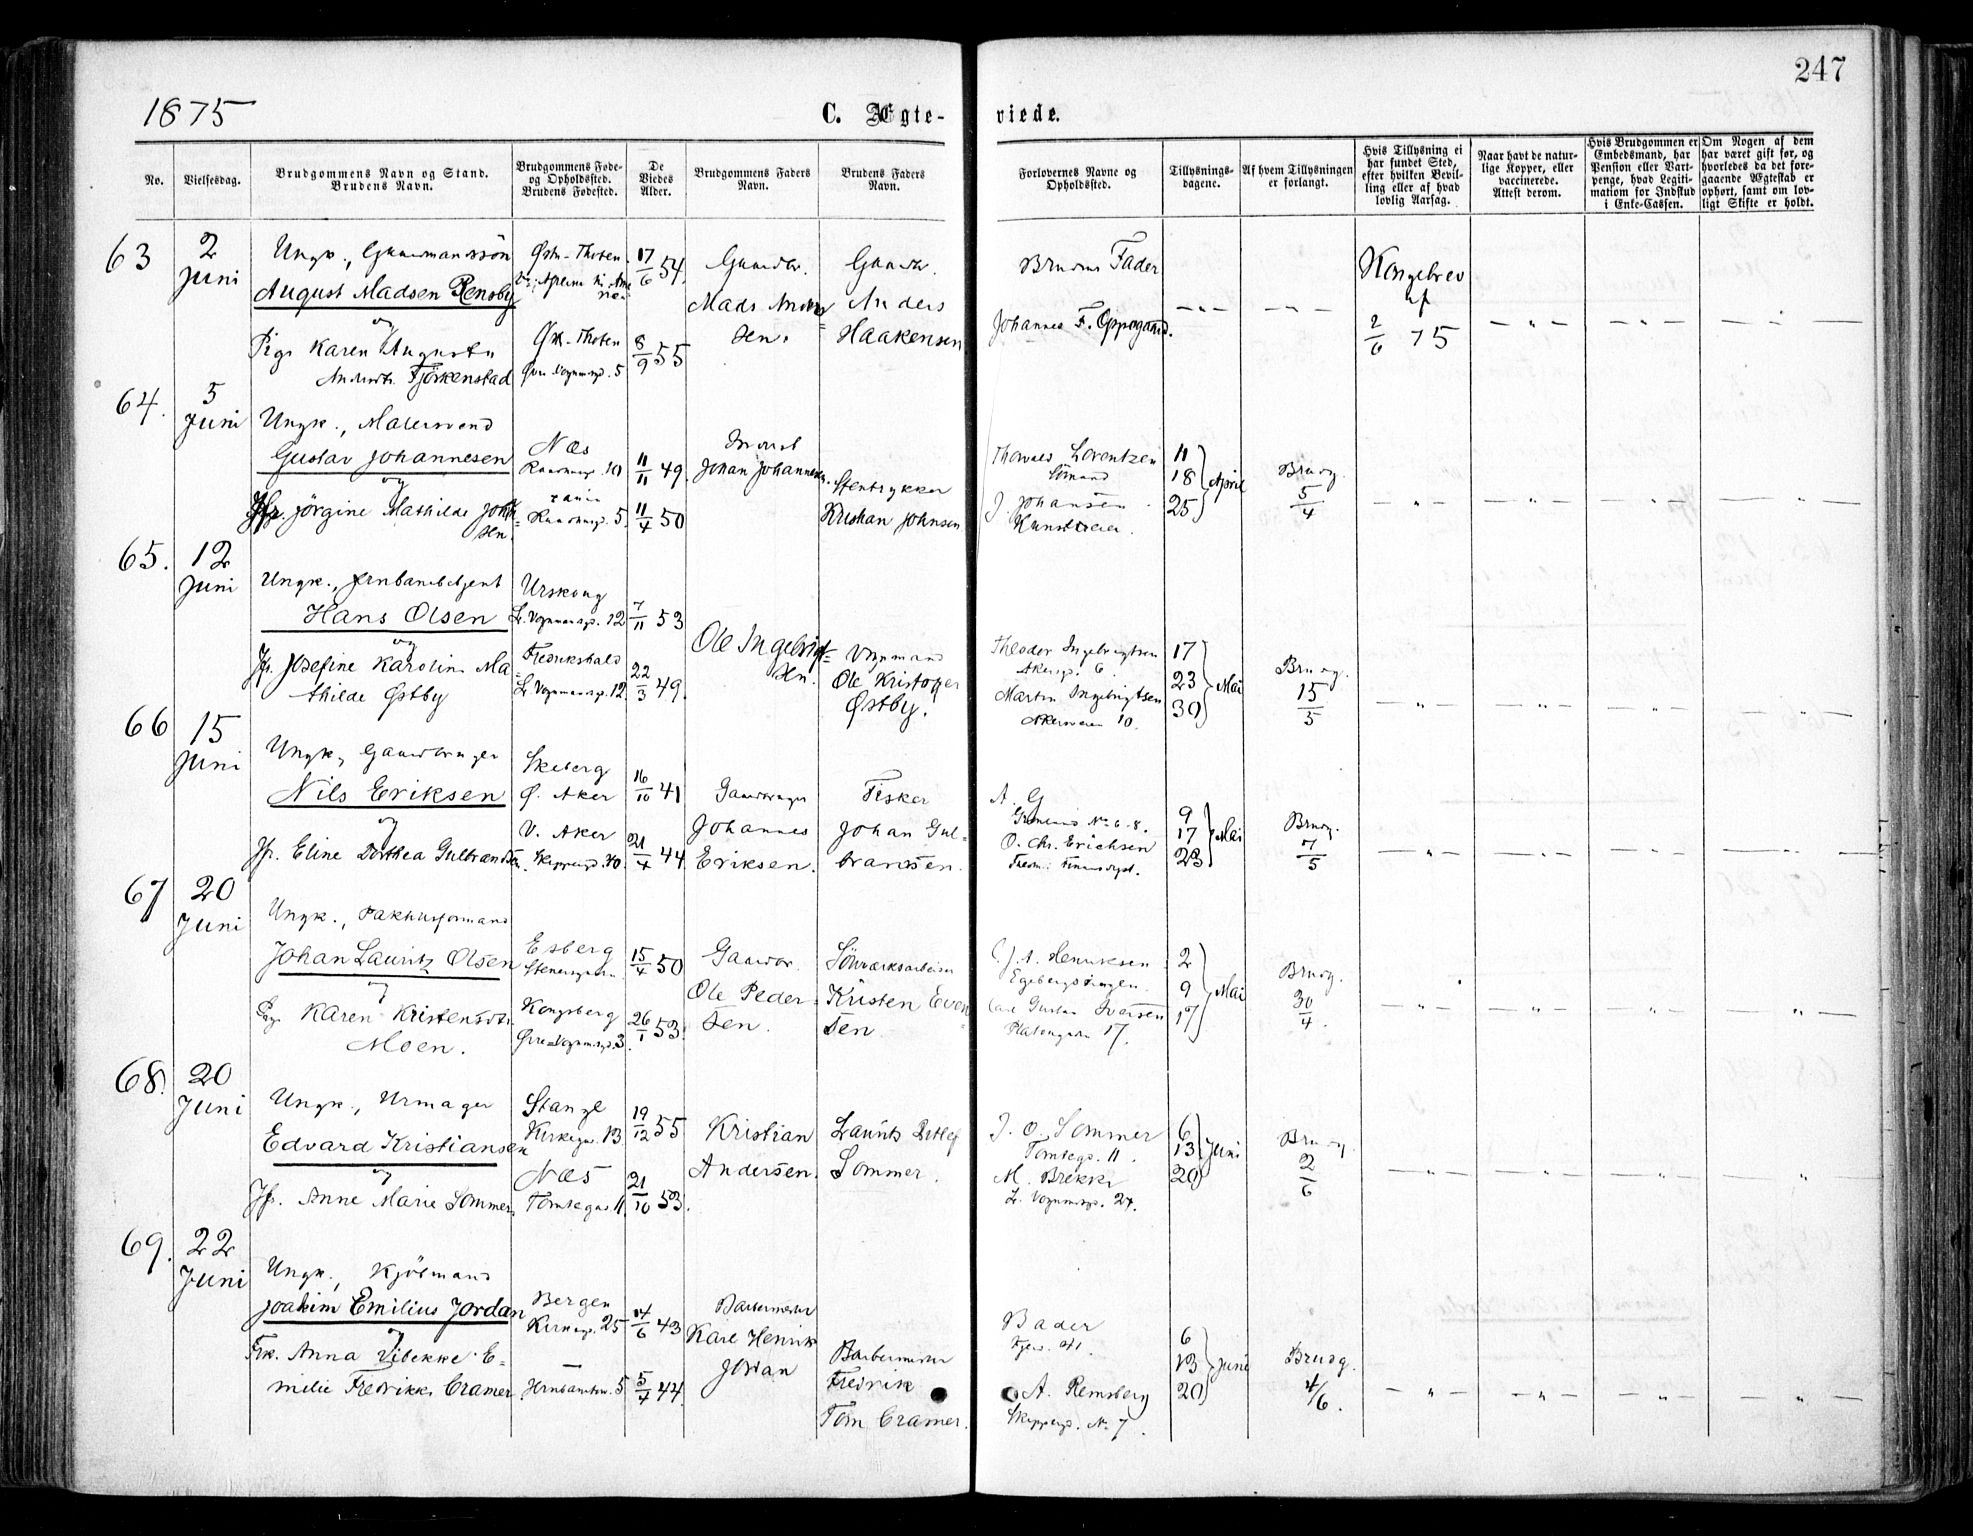 247
1875
C. Ægte-
viede.
No.
Vielsesdag.
Brudgommens Navn og Stand.
Brudens Navn.
Brudgommens Føde-
og Opholdssted.
Brudens Fødested.
De
Viedes
Alder.
Brudgommens Faders
Navn.
Brudens Faders
Navn.
Forlovernes Navne og
Opholdssted.
Tillysnings-
dagene.
Af hvem Tillysningen
er forlangt.
Hvis Tillysning ei
har fundet Sted,
efter hvilken Bevil-
ling eller af hvad
lovlig Aarsag.
Naar havt de natur-
lige Kopper, eller
vaccinerede.
Attest derom.
Hvis Brudgommen er
Embedsmand, har
Pension eller Vart-
penge, hvad Legiti-
mation for Indskud
i Enke-Cassen.
Om Nogen af dem
har været gift før, og
hvorledes da det fore-
gaaende Ægteskab er
ophørt, samt om lov-
ligt Skifte er holdt.
63
2
Juni
Ungk., Gaardmandssön
August Madsen Rensby
og
Pige Karen Augusta
Fjörkenstad
Østr. Thoten
Øst. Thoten
17/6 54.
8/9 55
Gaardbr.
Mads Ander=
sen.
Gaardbr.
Anders
Haakensen
Brudens Fader
Johannes F. Oppegaard.
Kongebrev
af
2/6 75
64.
5
Juni
Ungk., Malersvend
Gustav Johannesen
og
Jfr. Jörgine Mathilde John=
sen.
Næs
10
5.
11/11 49.
11/4 50
Johan Johannesen.
Stentrykker
Kristian Johnsen
Thorvald Lorentzen
Sömand
J. Johansen
11
18
25
April
Brudg.
5/4
65.
12
Juni
Ungk., Jernbanebetjent
Hans Olsen
og
Jfr. Josefine Karoline Ma=
thilde Østby
Urskoug
L. Vognmansg. 12
Fredrikshald
L. Vognmansg. 12.
7/11 53
22/3 49.
Ole Ingebrigt=
sen.
Vognmand
Ole Kristoffer
Østby.
Theodor Ingebrigtsen
Akersg. 6.
Martin Ingebrigtsen
Akersveien 10.
17
23
30
Mai
Brudg.
15/5
66
15
Juni
Ungk., Gaardbruger
Nils Eriksen
og
Jfr. Eline Dorthea Gulbrandsen.
Skeberg
Ø. Aker
V. Aker
16/10 41
21/4 44
Gaardbruger
Johannes
Eriksen.
Fisker
Johan Gul=
bransen.
No 6-8.
O. Chr. Erichsen
9
17
23
Mai
Brudg.
7/5
67
20
Juni
Ungk., Pakhusformand
Johan Lauritz Olsen
og
Pige Karen Kristensdtr.
Moen.
Esberg
Kongsberg
Øvre Vognmsg. 3.
15/4 50
26/1 53.
Gaardbr.
Ole Peder=
sen.
Sölvværksarbeider
Kristen Even=
sen.
Henriksen
Carl Gustav Iversen
17.
2
9
17
Mai
Brudg.
30/4.
68.
20
Juni
Ungk., Urmager
Edvard Kristiansen
og
Jfr. Anne Marie Sommer.
Stange
Kirkegd. 13.
Næs
Tomtegd. 11.
19/12 55
21/10 53.
Kristian
Andersen.
Laurits Detlef
Sommer.
J. O. Sommer
Tomtegd. 11.
M. Brekke
L. Vognmsg. 24.
6
13
20
Juni
Brudg.
2/6
69.
22
Juni
Ungk., Kjöbmand
Joakim Emilius Jordan
og
Frk. Anna Vibekke E=
milie Fredrikke Cramer
Bergen
25
5
14/6 43
5/4 44.
Barbermester
Karl Henrik
Jordan
Barbermester
Fredrik
Tom Cramer.
Bader
41.
A. Remsberg
Skipperg. No 7.
6
13
20
Juni
Brudg.
4/6.